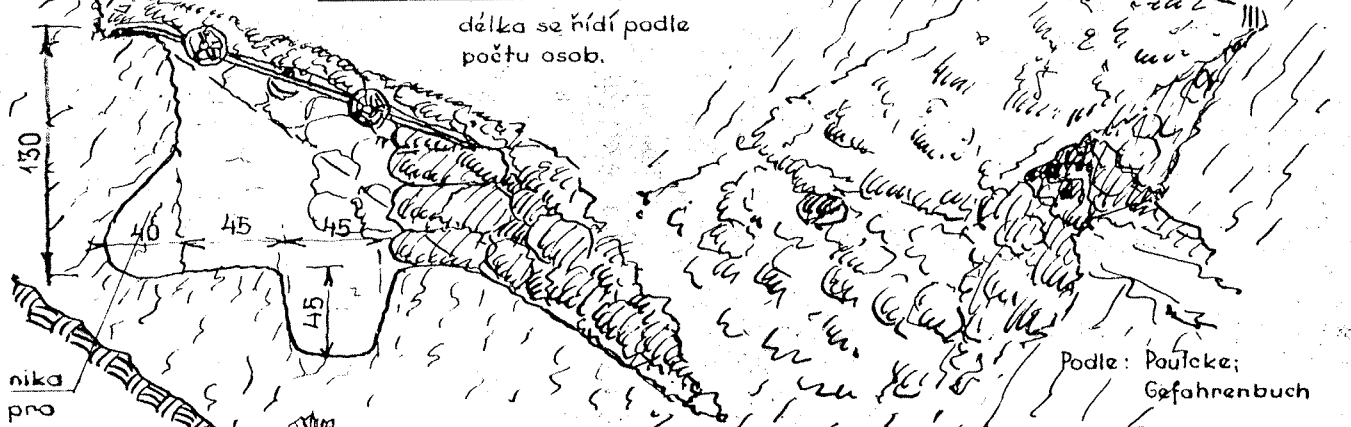 délka se řídí podle
počtu osob.
130
40
45
45
45
nika
pro
Podle: Paulcke;
Gefahrenbuch